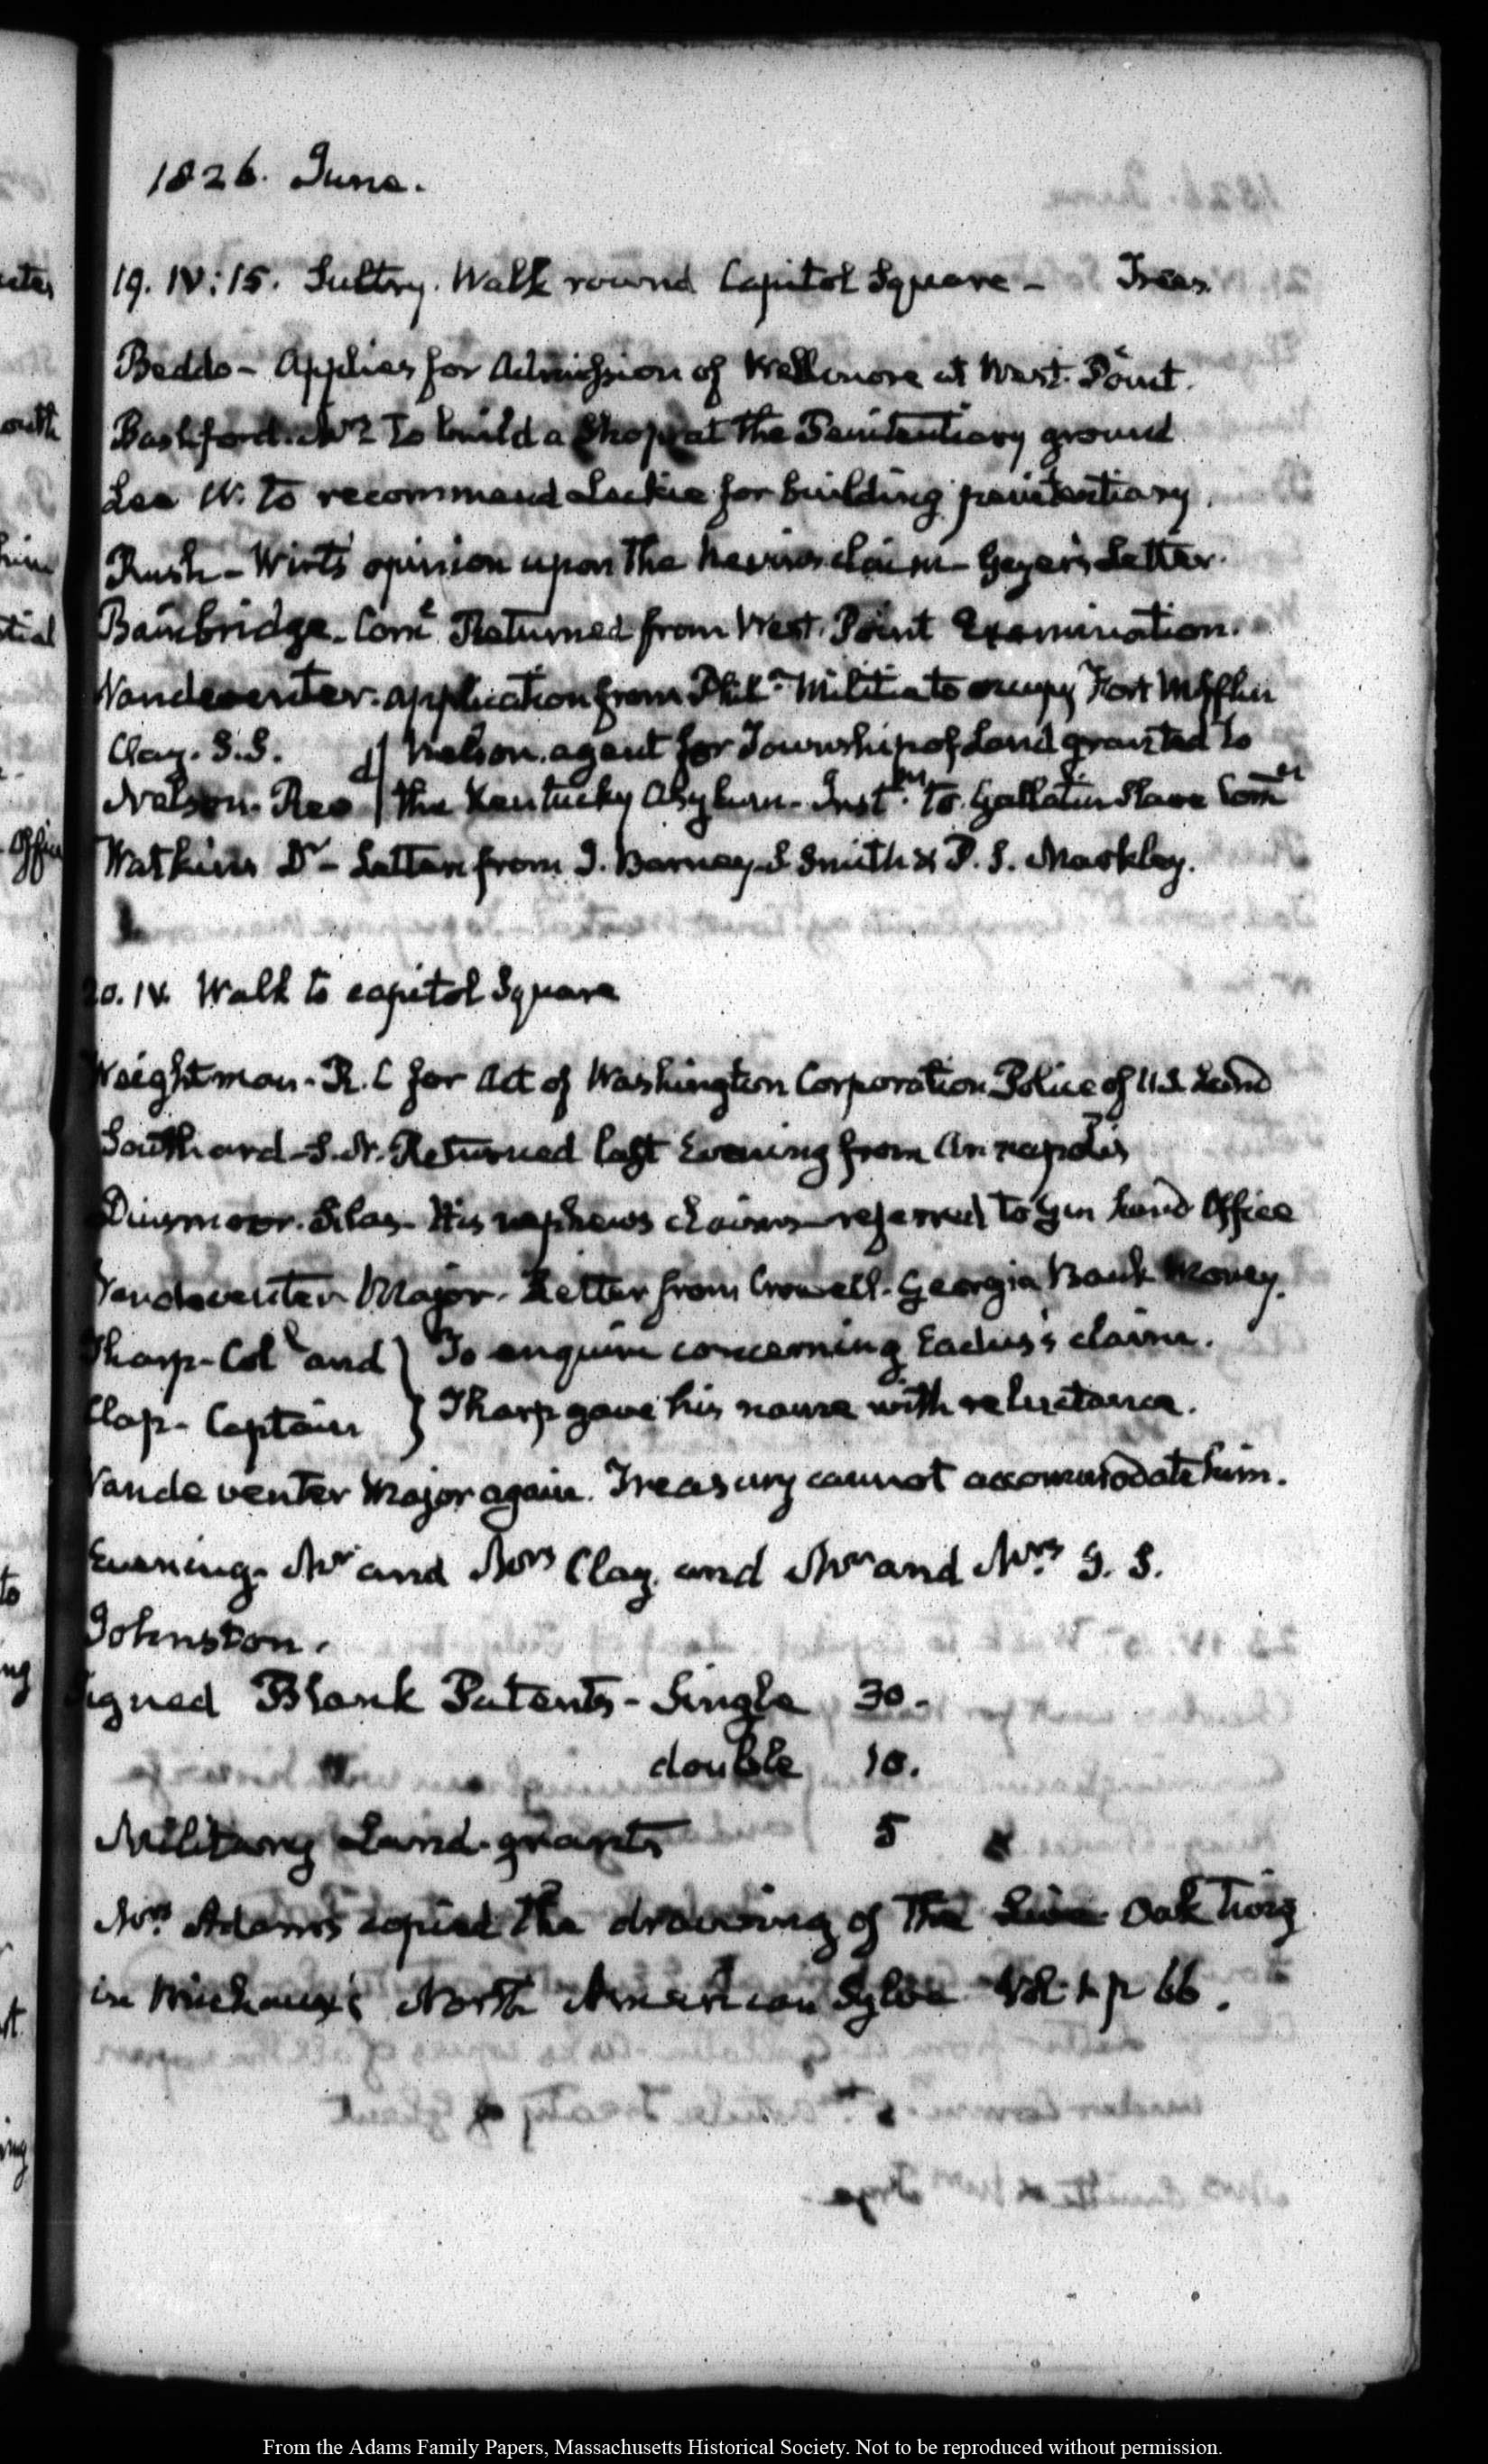 1826. June.
19. IV:15. Sultry. Walk round Capitol Square - Trees
Beddo - Applies for Admission of Wellmore at West-Point.
Bashford. Mr. To build a Shop at the Penitentiary ground
Lee W. to recommend Leckie for building penitentiary.
Rush - Wirt's opinion upon the claim - Geyer's Letter.
Bainbridge. Come. Returned from West-Point Examination.
Vandeventer. application from Phila. Militia to occupy Fort Mifflin
Clay. S.S. Nelson. agent for Township of Land granted to
Nelson. the Kentucky Asylum. Instns. to Gallatin Slave Comn
Watkins Dr - Letters from J. Barney S Smith & P. S. Markley.
20. IV. Walk to capitol Square
Weightman. R. C for Act of Washington Corporation Police of U.S. Land
Southard - S.N. Returned last Evening from Annapolis
Dinsmoor. Silas. His nephews claims - referred to Gen Land Office
Vandeventer Major. Letter from Crowell. Georgia Bank Money.
Tharp - Coll. and } To enquire concerning claim.
Clap - Captain } Tharp gave his name with reluctance.
Vandeventer Major again. Treasury cannot accommodate him.
Evening. Mr and Mrs Clay. and Mr and Mrs. J. S.
Johnston.
Signed Blank Patents - Single 30.
double 10.
Military Land-grants 5
Mrs. Adams copied the drawing of the Live Oak twig
in Michaux's North American Sylva Vol. 1 p 66.
From the Adams Family Papers, Massachusetts Historical Society. Not to be reproduced without permission.